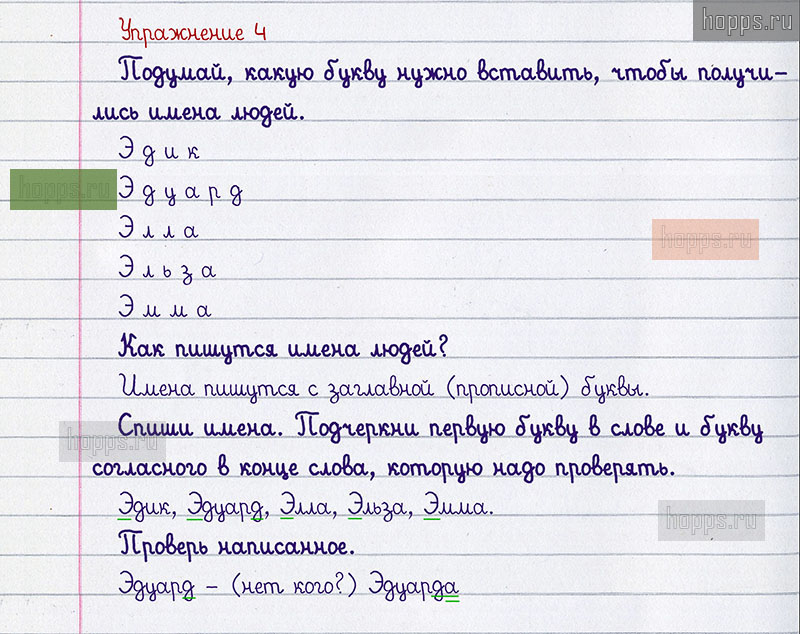 hopps.ru
Упражнение 4
Подумай, какую букву нужно вставить, чтобы получи-
лись имена людей.
Э д и к
hopps.ru
Э д у а р д
Э л л а
hopps.ru
Э л ь з а
Э м м а
Как пишутся имена людей?
Имена пишутся с заглавной (прописной) буквы.
Спиши имена. Подчеркни первую букву в слове и букву
hopps.ru
согласного в конце слова, которую надо проверять.
Эдик, Эдуард, Элла, Эльза, Эмма.
hopps.ru
Проверь написанное.
Эдуард – (нет кого?) Эдуарда